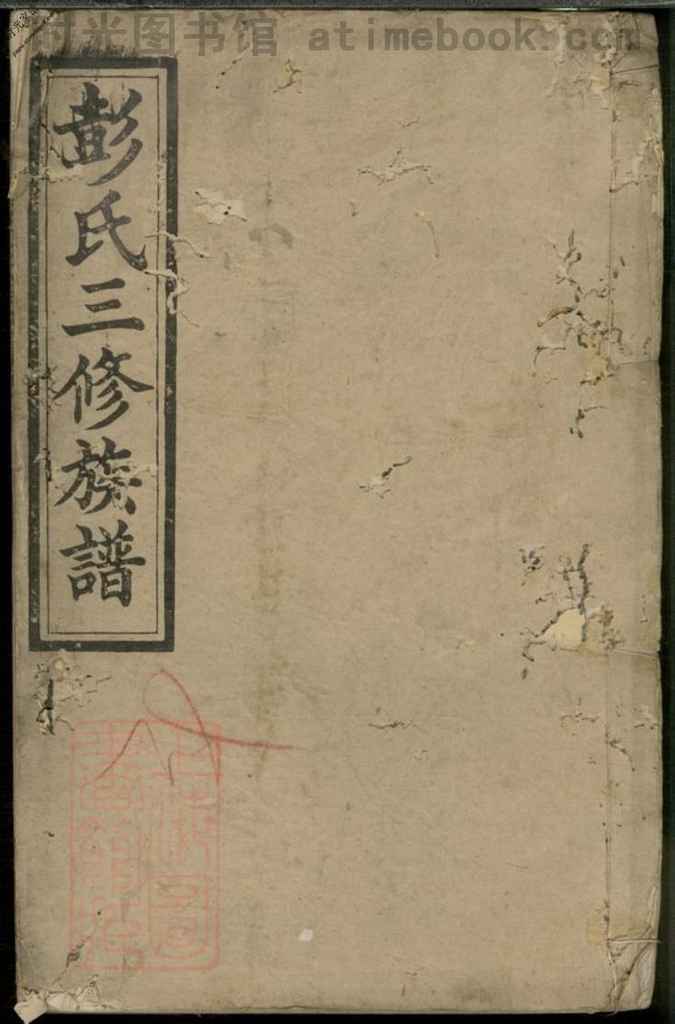 时光图书馆 atimebook.com
彭氏三修族譜